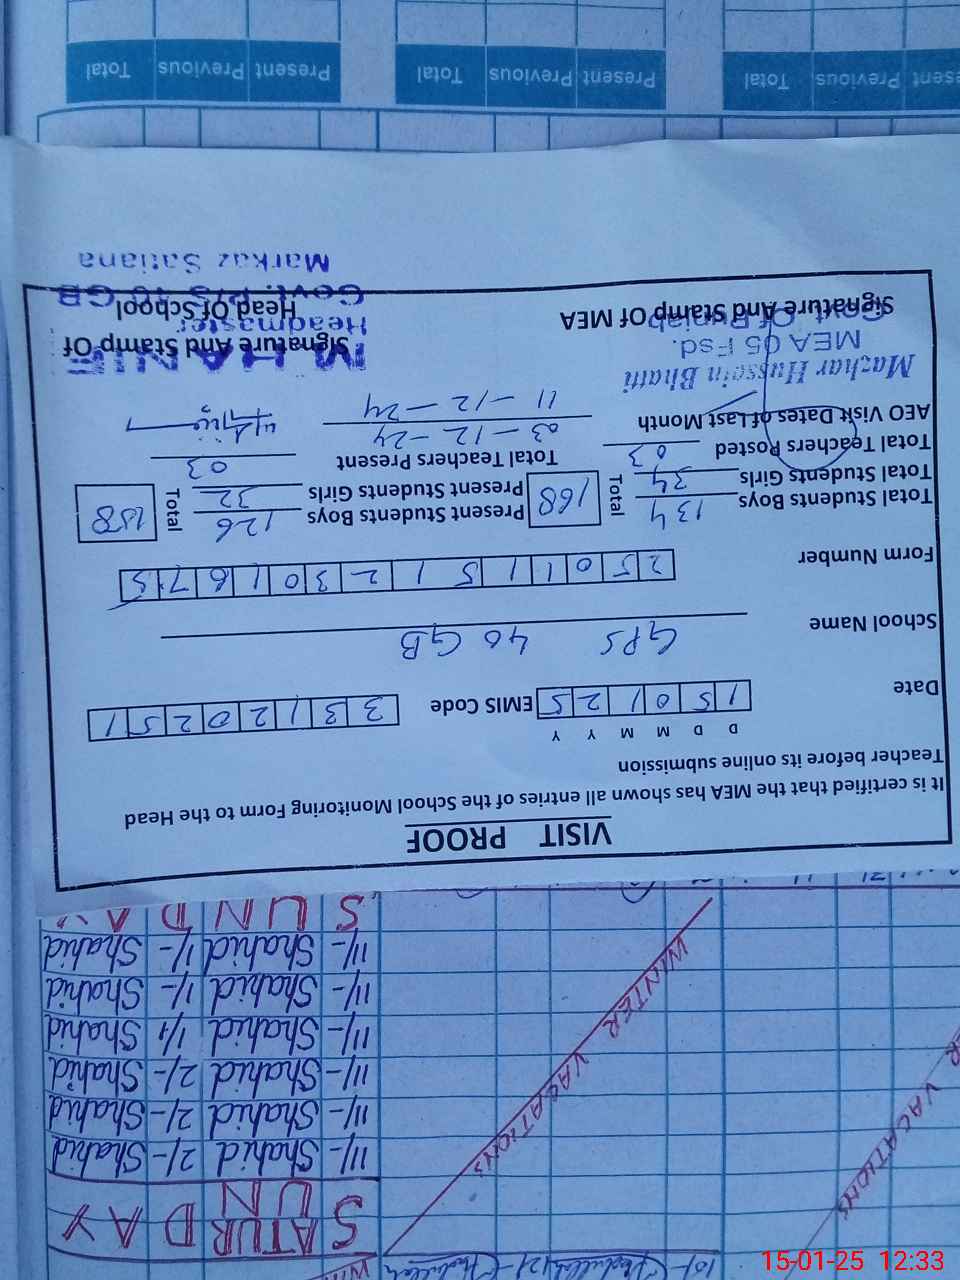 VISIT PROOF
It is certified that the MEA has shown all entries of the School Monitoring Form to the Head
Teacher before its online submission
D D M M Y Y
Date 1 5 0 1 2 5 EMIS Code 3 3 1 2 0 2 5 1
School Name GPS 40 GB
Form Number 2 5 0 1 1 5 1 2 3 0 1 6 7 5
Total Students Boys 134 Total 168 Present Students Boys 126 Total 158
Total Students Girls 34 Present Students Girls 32
Total Teachers Posted 03 Total Teachers Present 03
AEO Visit Dates of Last Month 03-12-24
11-12-24
Mazhar Hussain Bhatti
MEA 05 Fsd.
Govt. Of Punjab
Signature And Stamp Of MEA
Signature And Stamp Of
Head Of School
Headmaster
Markaz Satiana
Present Previous Total
Present Previous Total
Present Previous Total
SATURDAY
SUN
11/- Shahid 2/- Shahid
11/- Shahid 2/- Shahid
11/- Shahid 2/- Shahid
11/- Shahid 1/1 Shahid
11/- Shahid 1/- Shahid
11/- Shahid 1/- Shahid
SUNDAY
WINTER VACATIONS
VACATIONS
15-01-25 12:33